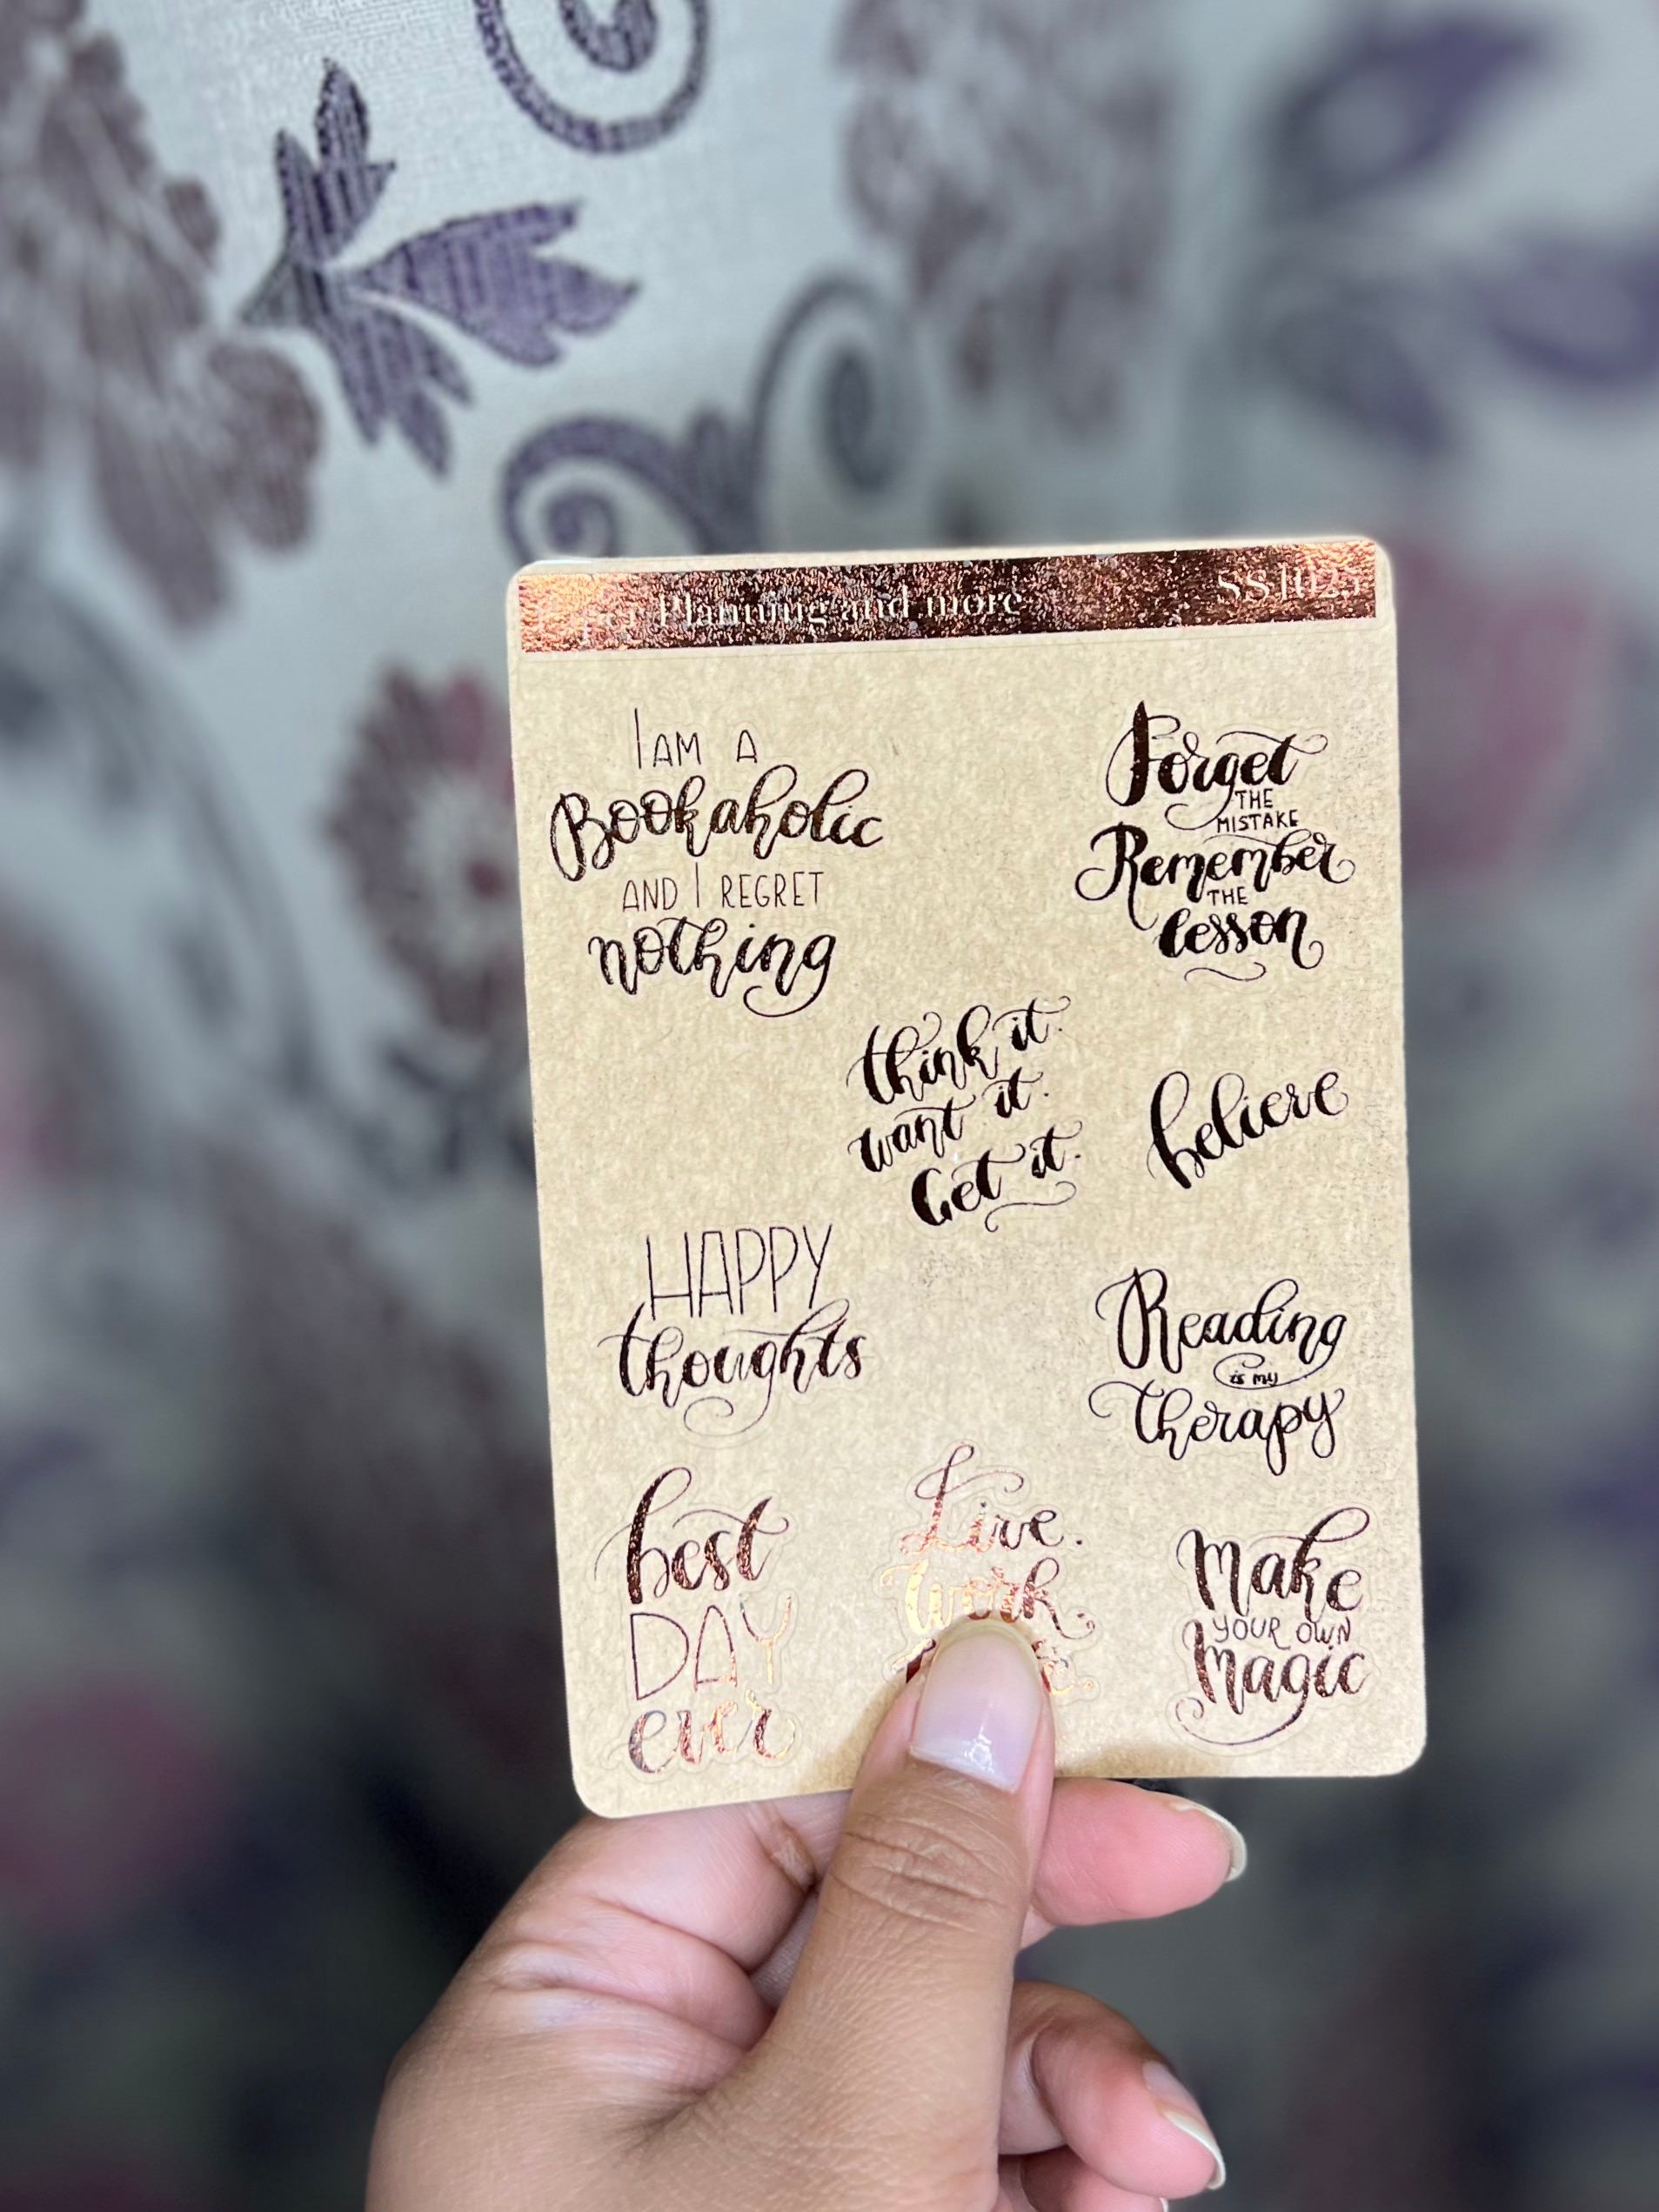 Planning and more
SS1025
I AM A
Bookaholic
AND I REGRET
nothing
Forget
THE
MISTAKE
Remember
THE
lesson
think it.
want it.
Get it.
believe
HAPPY
thoughts
Reading
is my
therapy
best
DAY
ever
Live.
Work.
Make
YOUR OWN
Magic